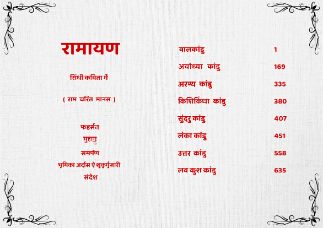 रामायण
सिंधी कविता में
( राम चरित मानस )
फहर्सत
मुहागु
समर्पण
भूमिका अर्दास ऐं शुक्रगुज़ारी
संदेश
बालकांडु 1
अयोध्या कांडु 169
अरण्य कांडु 335
किशिकिंधा कांडु 380
सुंदरु कांडु 407
लंका कांडु 451
उतर कांडु 558
लव कुश कांडु 635